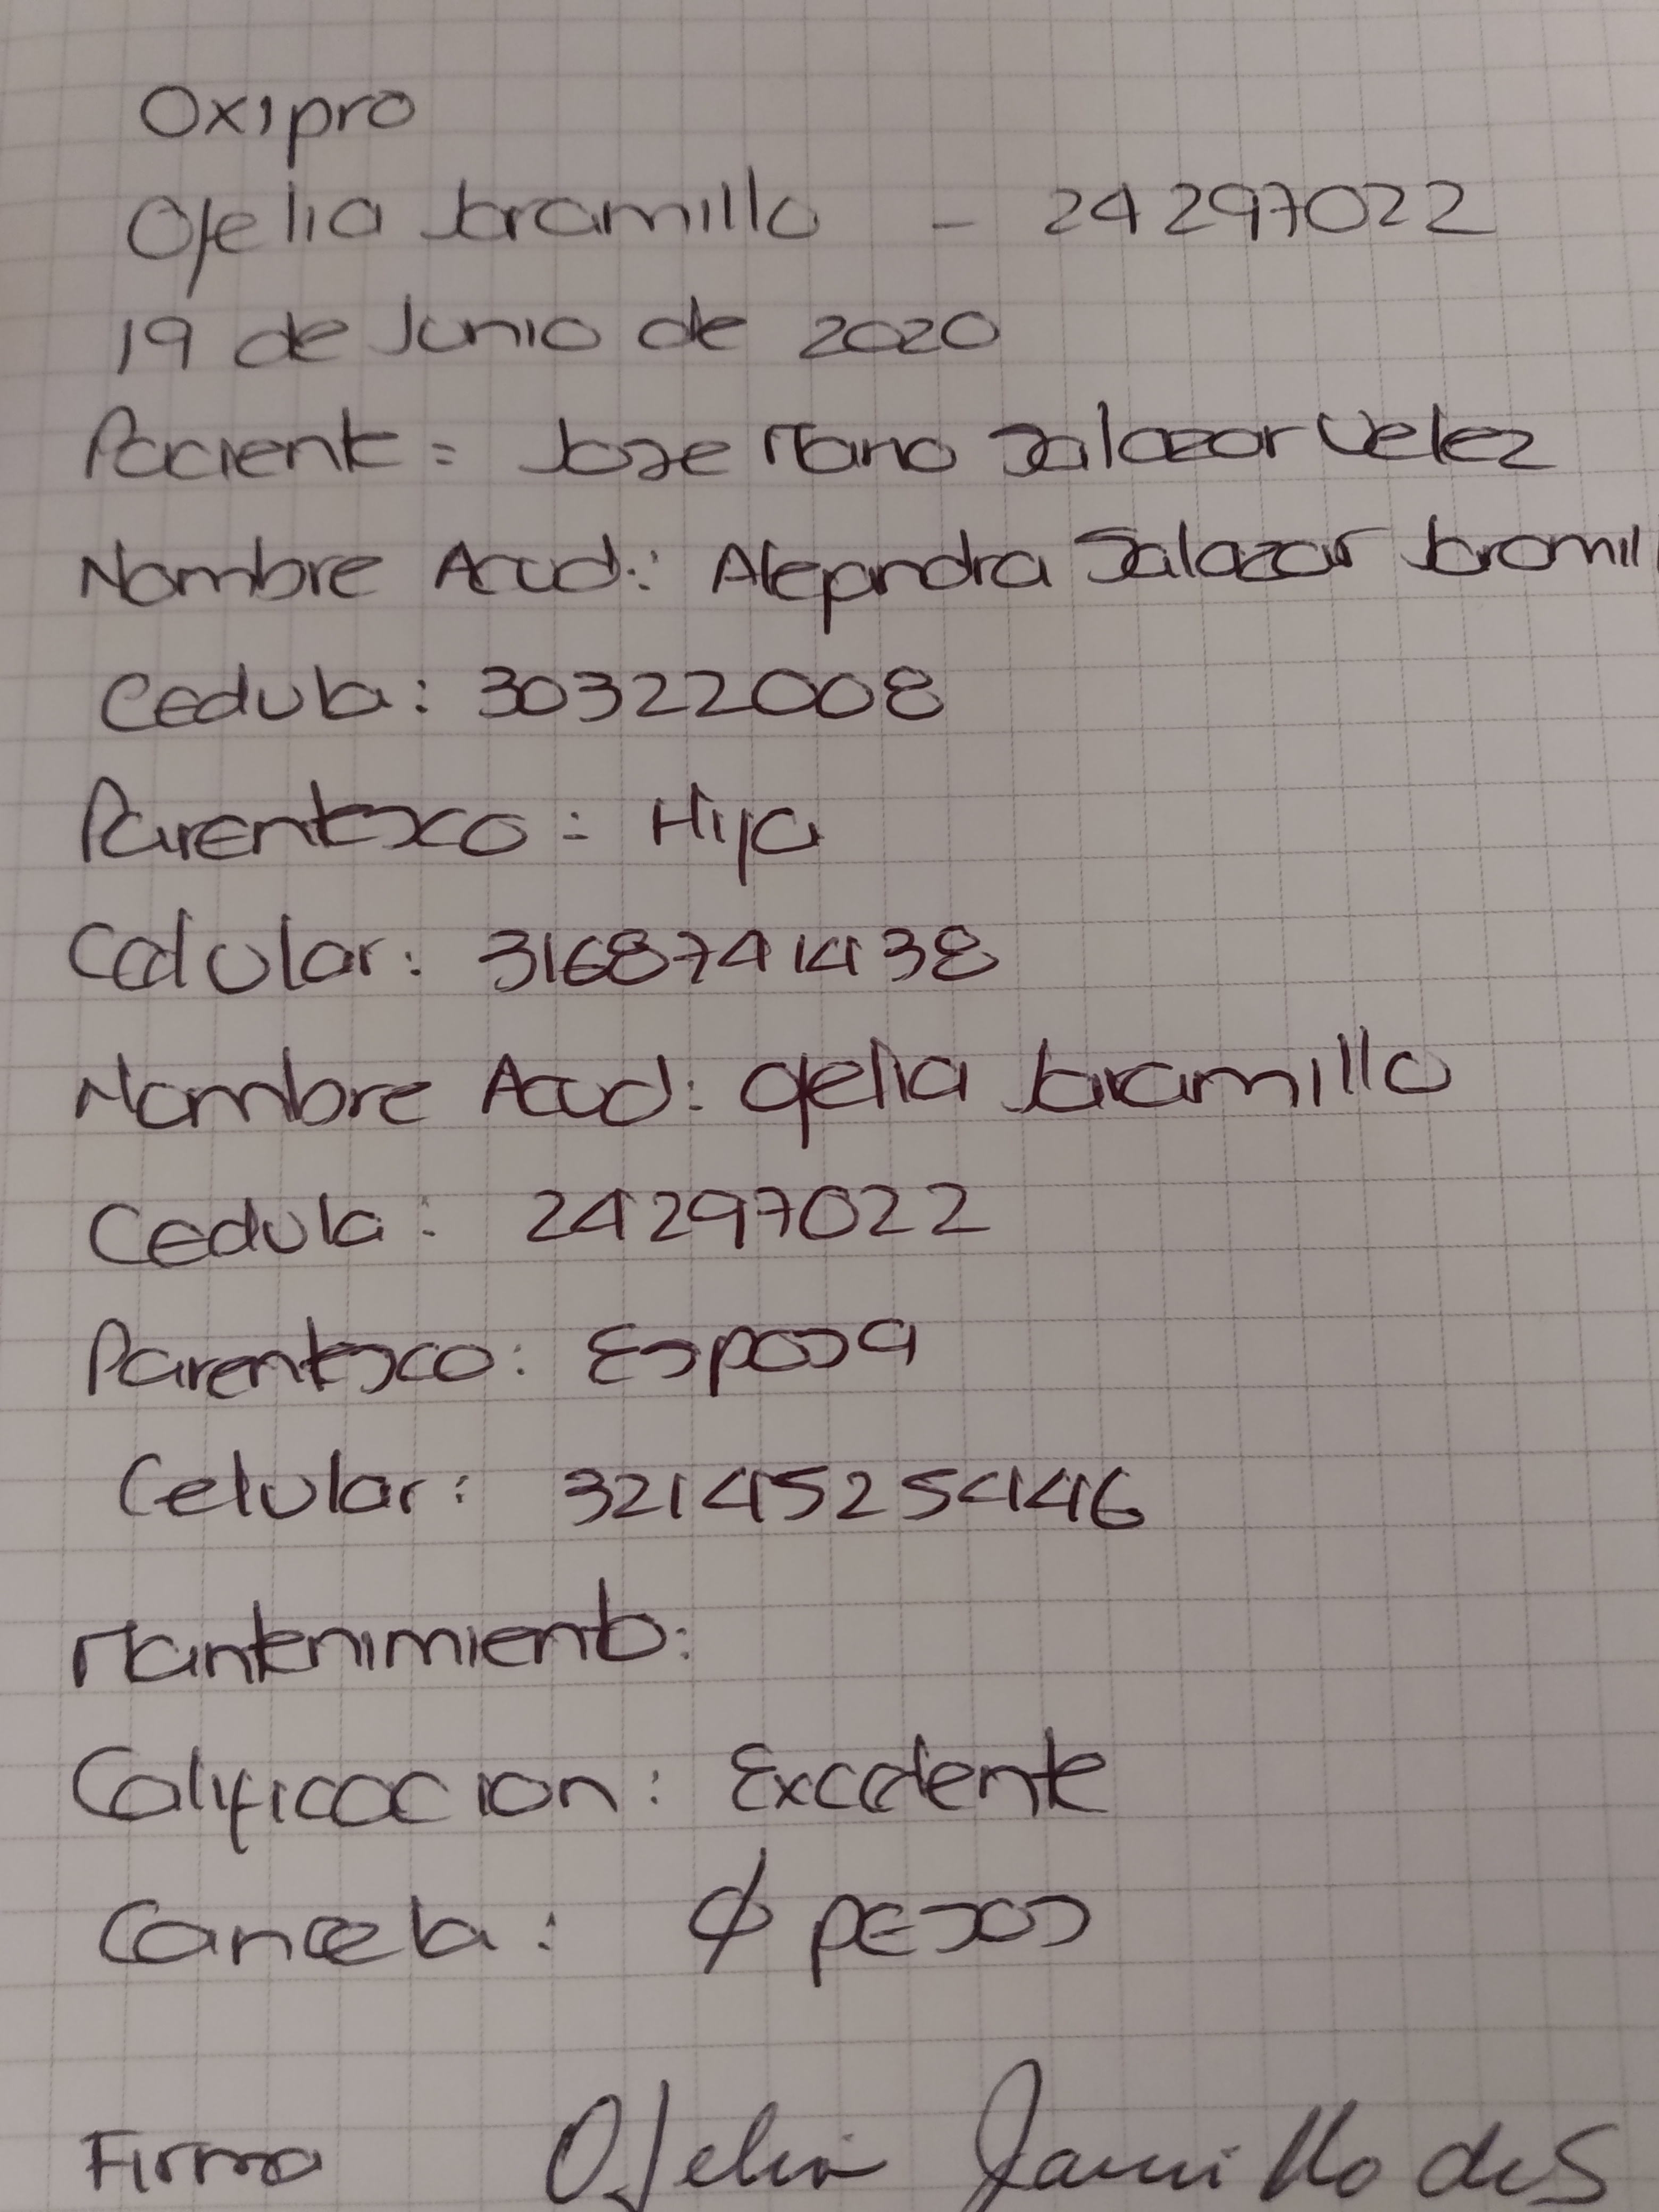 Oxipro
Ofelia Jaramillo - 24297022
19 de Junio de 2020
Paciente = Jose Mario Salazar Velez
Nombre Acud: Alejandra Salazar Jaramill
Cedula: 30322008
Parentesco = Hija
Celular: 3168741438
Nombre Acud: Ofelia Jaramillo
Cedula: 24297022
Parentesco: Esposa
Celular: 3214525446
Mantenimiento:
Calificacion: Excelente
Cancela: $ pesos
Firma Ofelia Jaramillo de S